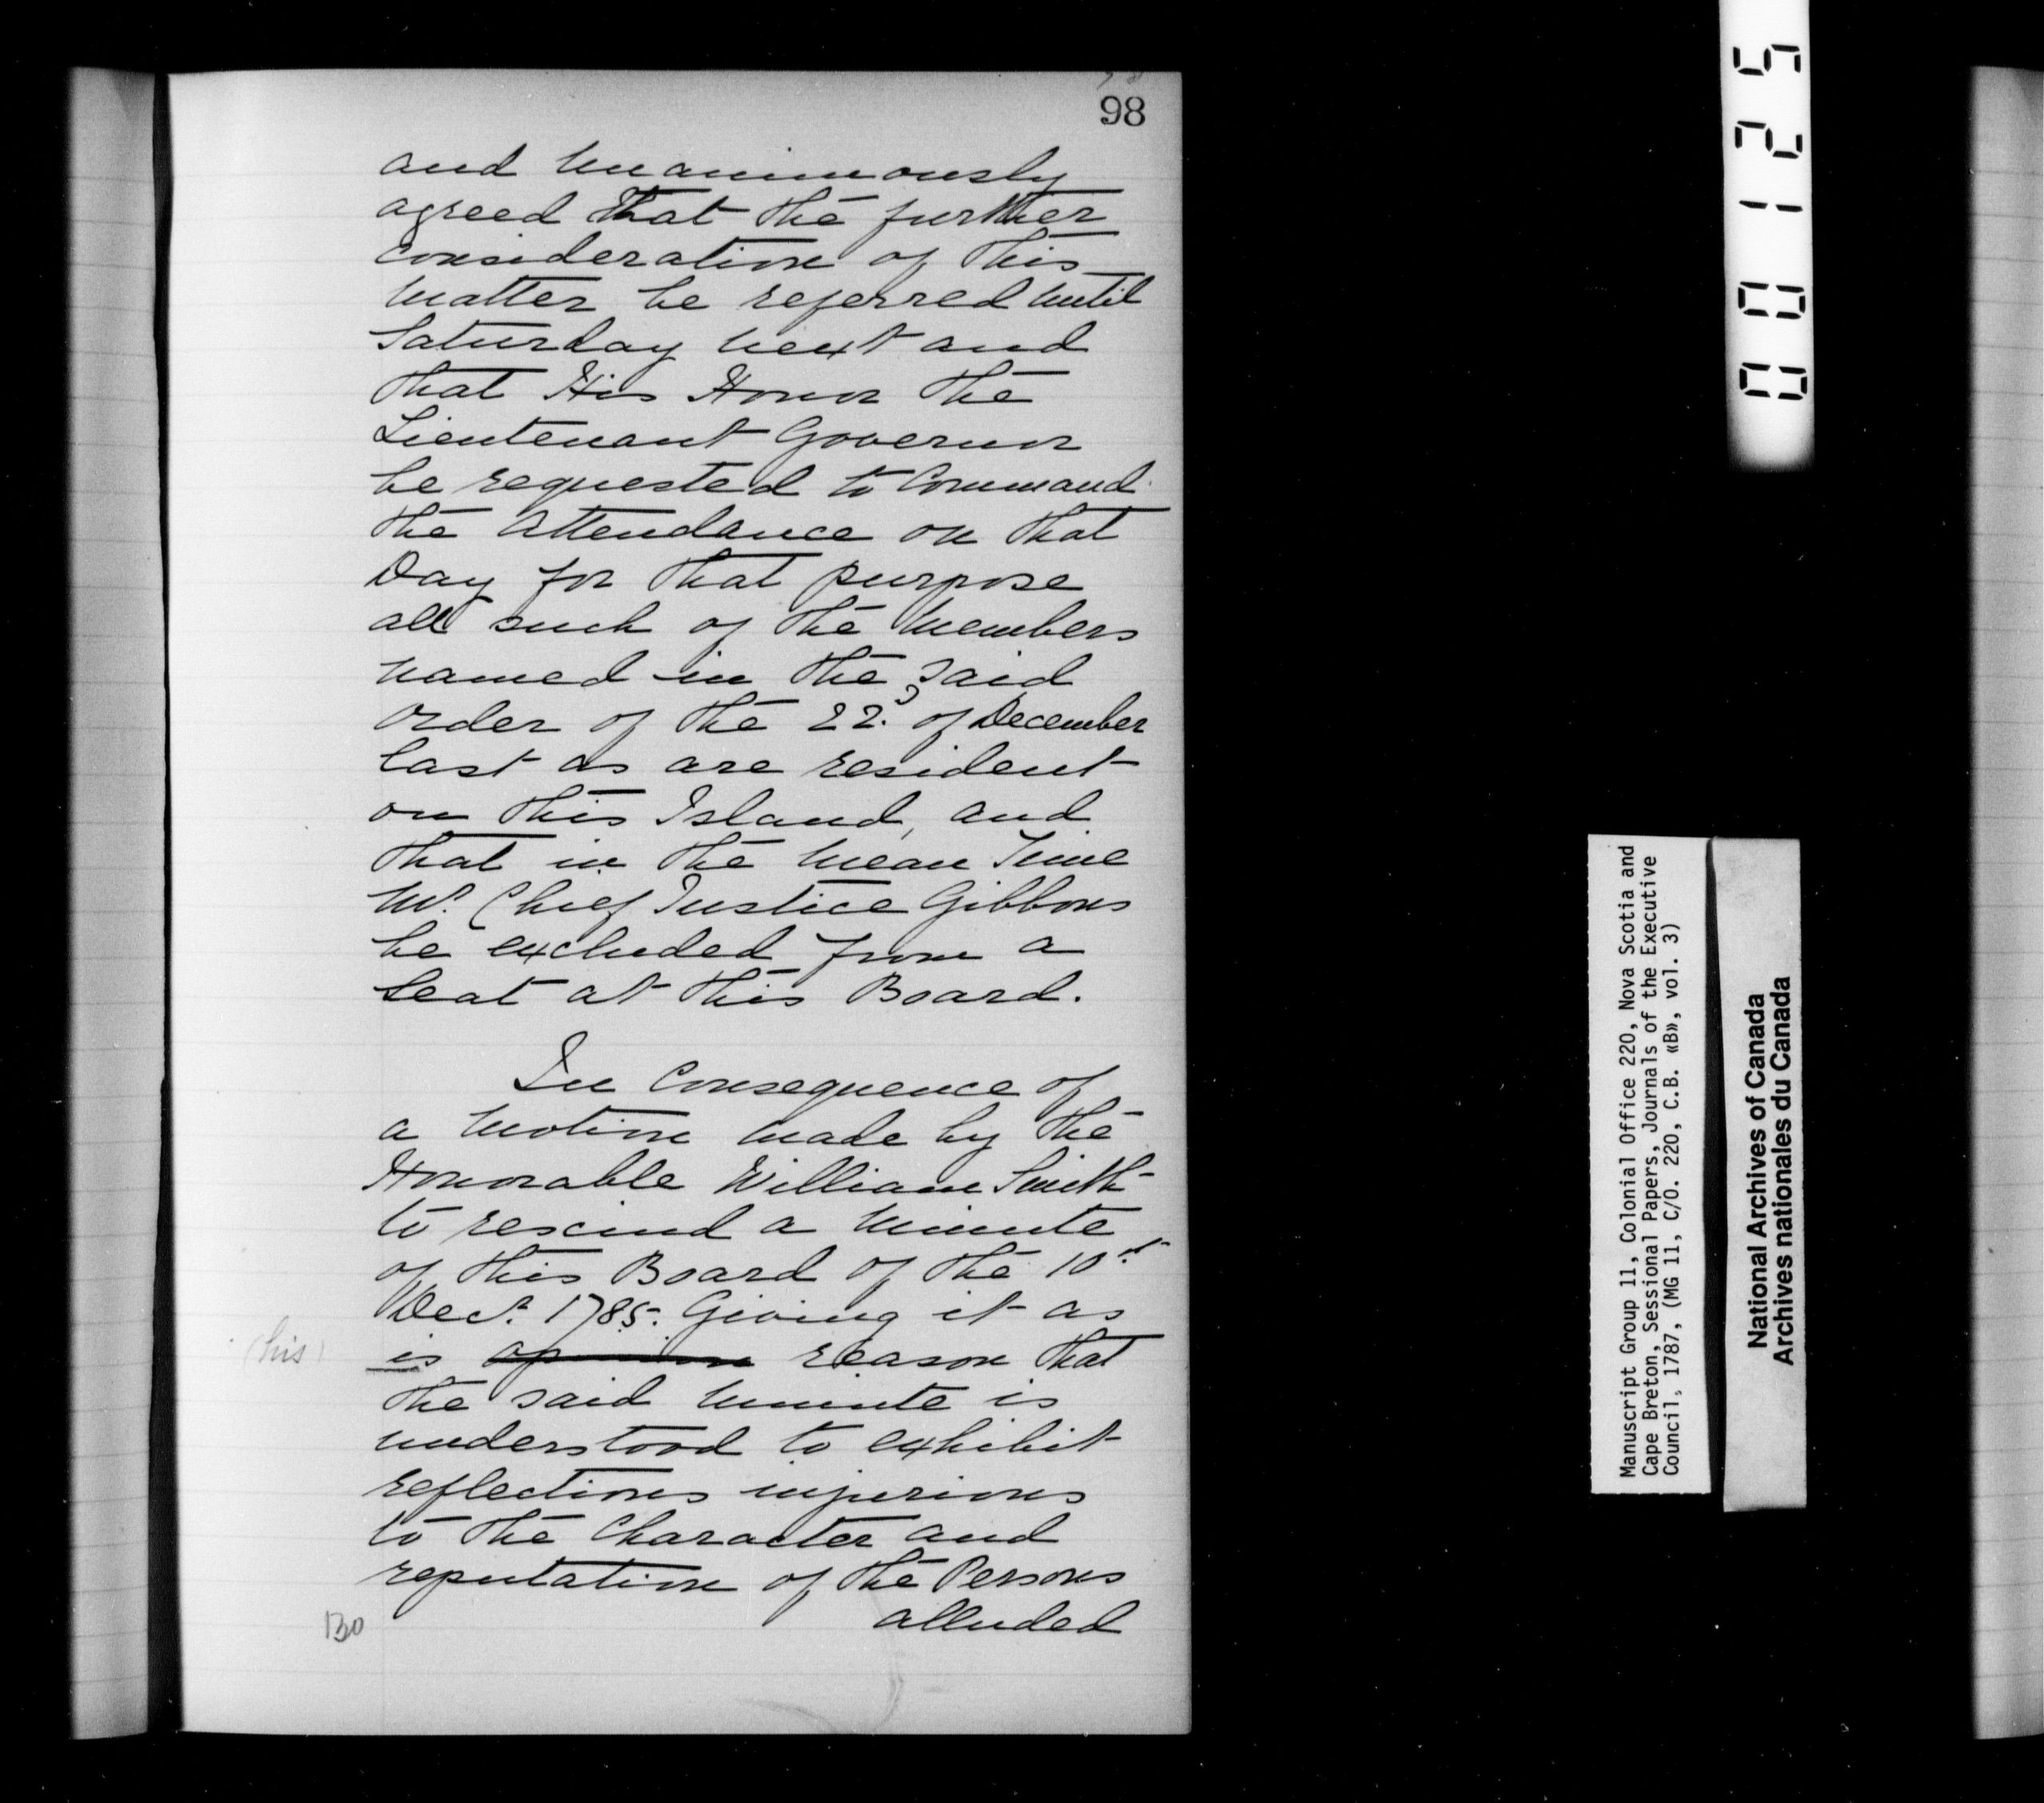 98
and unanimously
agreed that the further
consideration of this
matter be referred until
Saturday next and
that His Honor the
Lieutenant Governor
be requested to Command
the Attendance on that
Day for that purpose
all such of the Members
named in the said
order of the 22d. of December
last as are resident
on this Island, and
that in the mean Time
Mr. Chief Justice Gibbons
be excluded from a
Seat at this Board.
In Consequence of
a Motion made by the
Honorable William Smith
to rescind a Minute
of this Board of the 10th
Decr. 1785. Giving it as
(his) is opinion reason that
the said Minute is
understood to exhibit
reflections injurious
to the Character and
reputation of the Persons
alluded
130
000125
Manuscript Group 11, Colonial Office 220, Nova Scotia and
Cape Breton, Sessional Papers, Journals of the Executive
Council, 1787, (MG 11, C/O. 220, C.B. «B», vol. 3)
National Archives of Canada
Archives nationales du Canada